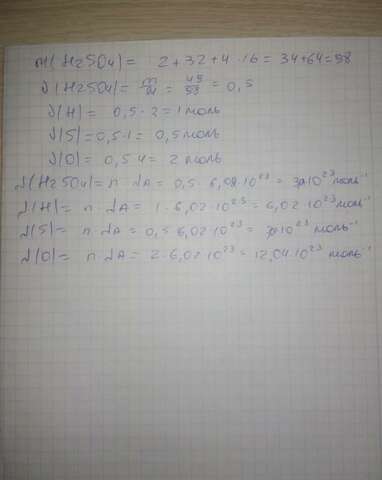 m(H2SO4)= 2+32+4·16= 34+64=98
ν(H2SO4)= m/M = 49/98 = 0,5
ν(H)= 0,5·2=1 моль
ν(S)=0,5·1= 0,5 моль
ν(O)= 0,5·4= 2 моль
N(H2SO4)= n·NA= 0,5·6,02·10^23= 3·10^23 моль^-1
N(H)= n·NA= 1·6,02·10^23= 6,02·10^23 моль^-1
N(S)= n·NA= 0,5·6,02·10^23= 3·10^23 моль^-1
N(O)= n·NA= 2·6,02·10^23= 12,04·10^23 моль^-1